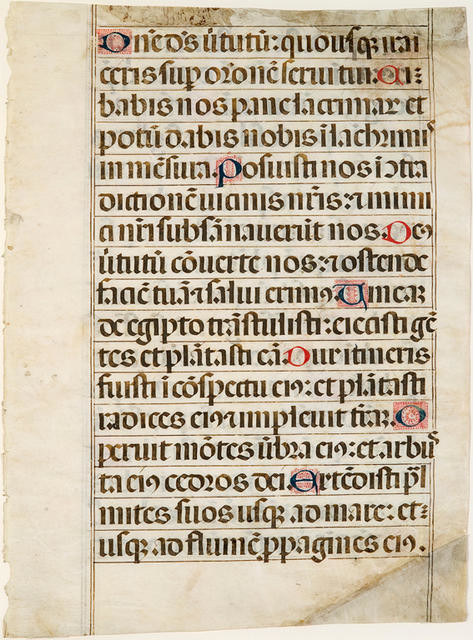 Dñe ds ũtutũ: quousq; iras
ceris sup orõnẽ serui tui: Ci:
babis nos pane lacrimar et
potũ dabis nobis ĩ lachrimis
in mẽsura. Posuisti nos ĩ cõtra
dictionẽ uicinis nr̃is: ⁊ inimi
ci nr̃i subsãnauerũt nos. De9
ũtutũ cõuerte nos: ⁊ ostende
faciẽ tuã ⁊ salui erim9. Uineaz
de egipto trãstulisti: eiecisti gẽ
tes et plãtasti eã. Dux itineris
fuisti ĩ cõspectu ei9: et plãtasti
radices ei9 ⁊ impleuit t̃raz. O
peruit mõtes ũbra ei9: et arbus
ta ei9 cedros dei. Extẽdisti pal
mites suos usq; ad mare: et:
usq; ad flumẽ ꝓpagines ei9.